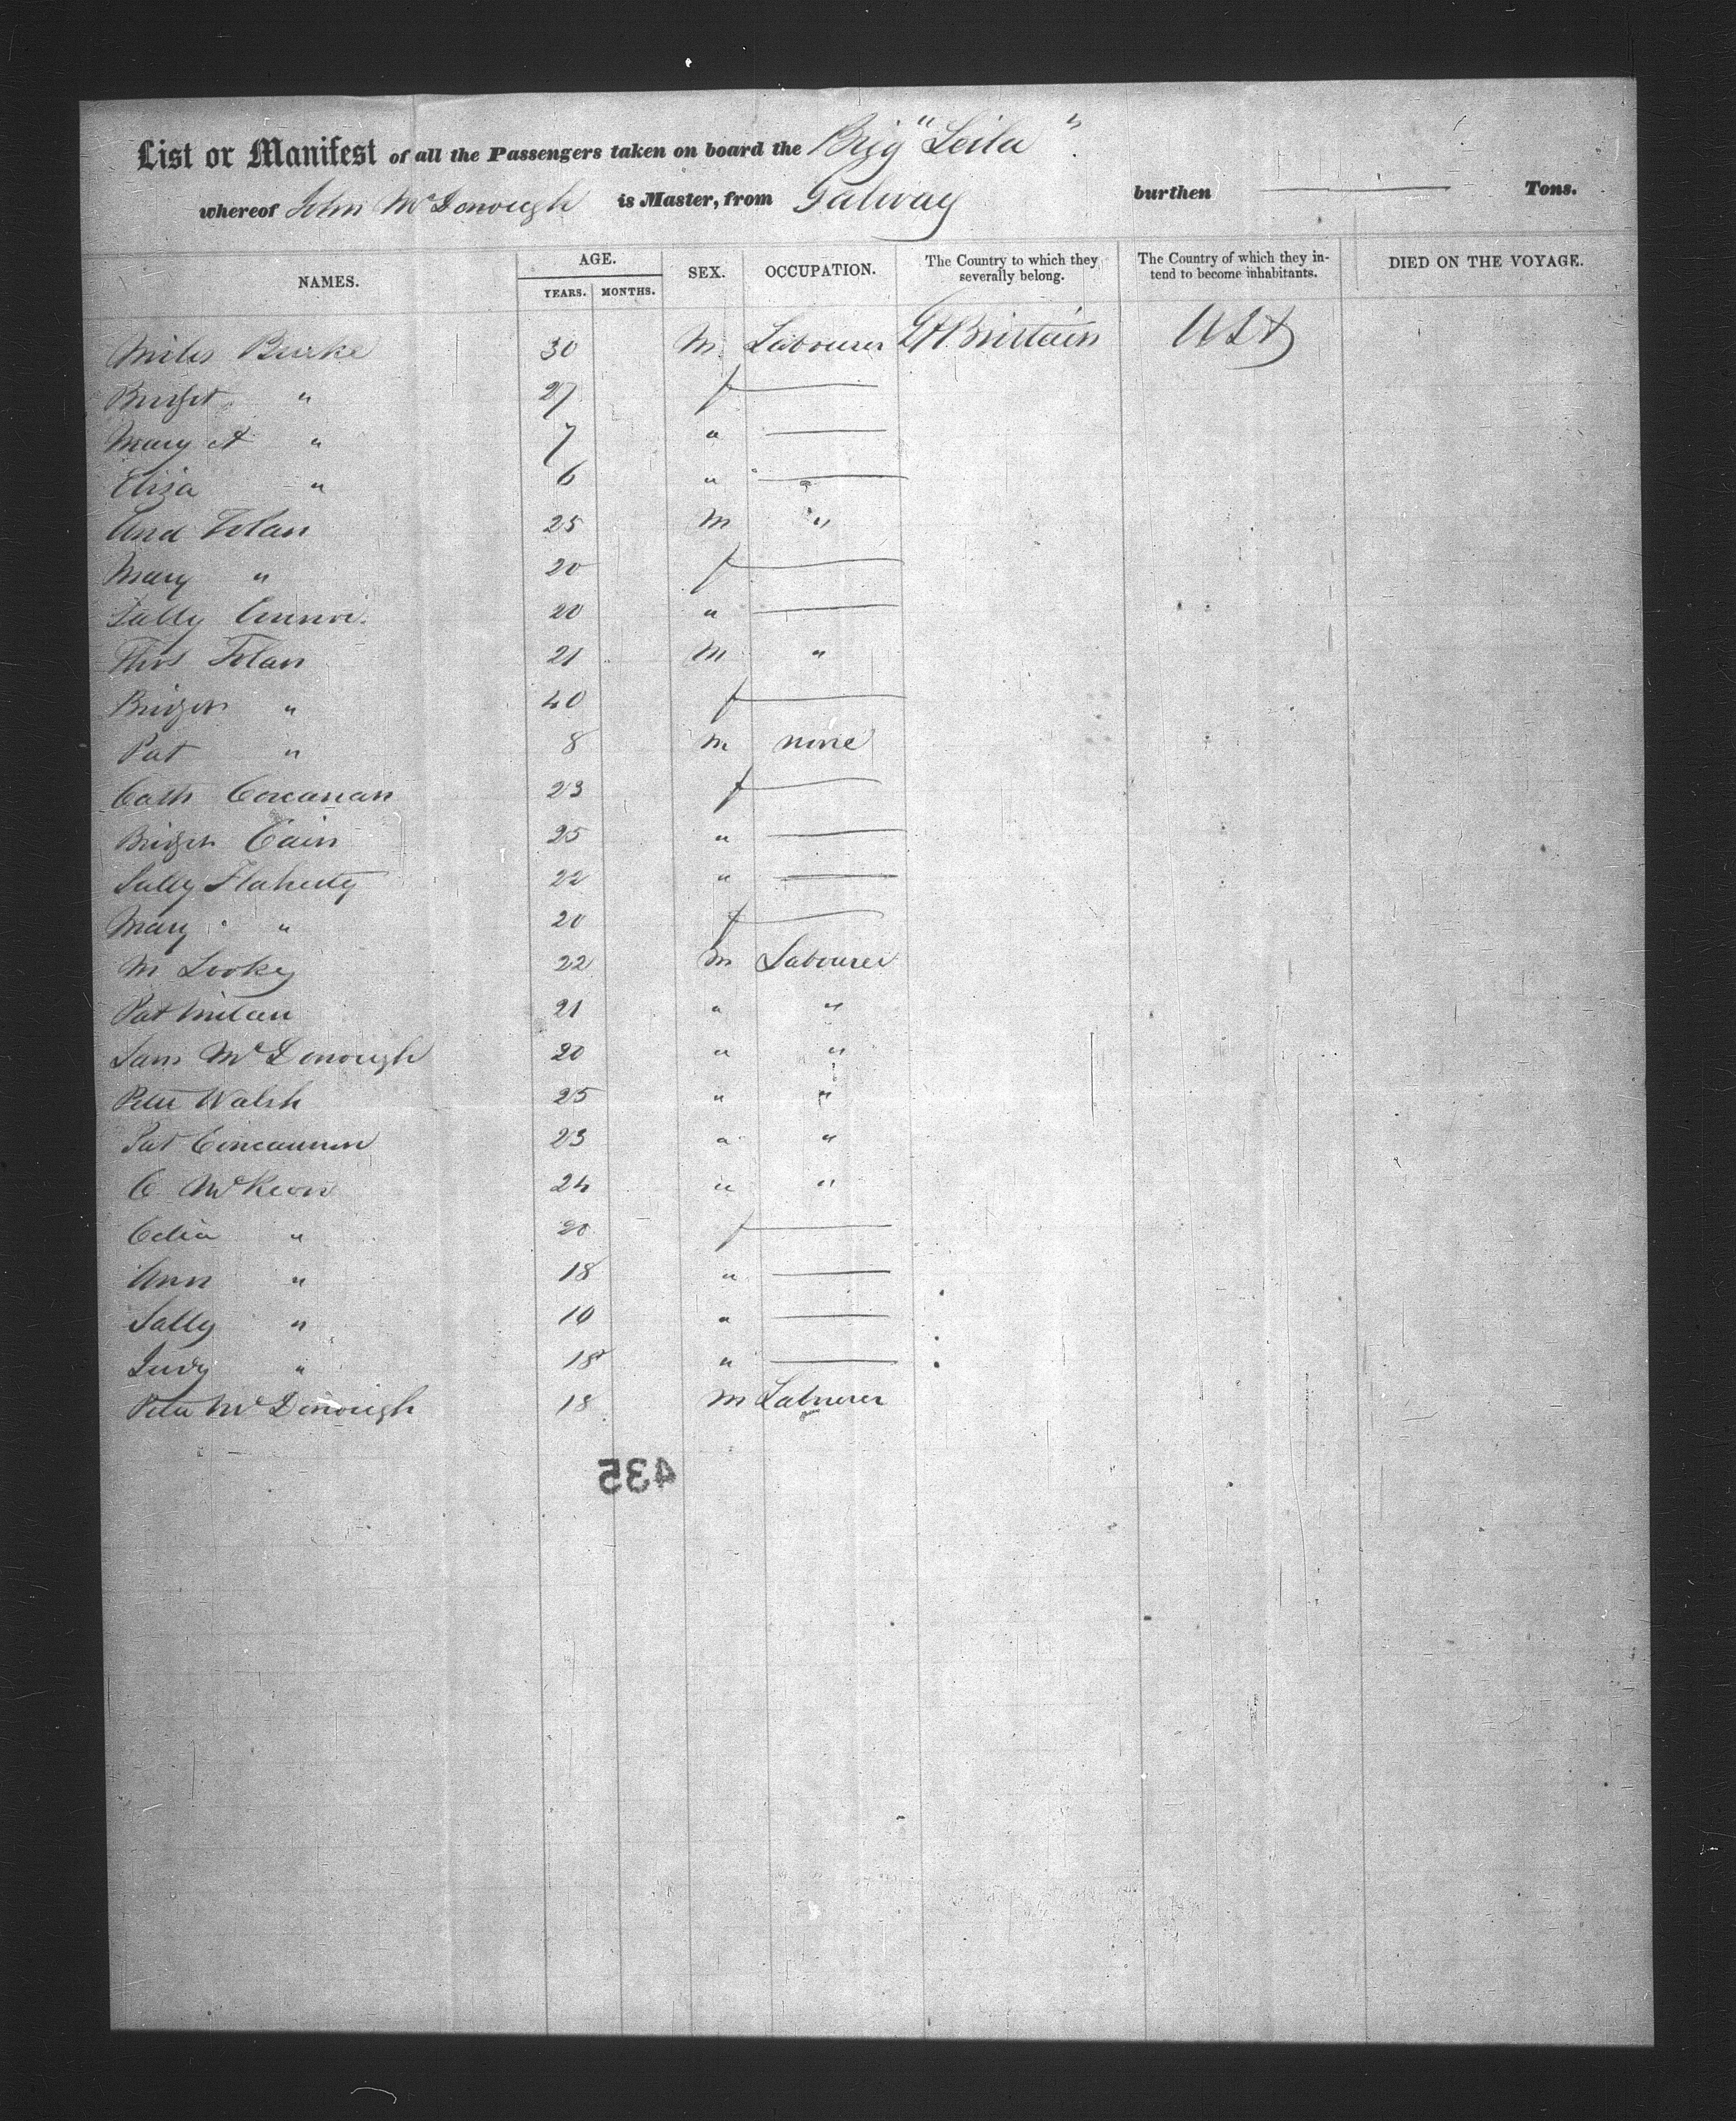 List or Manifest of all the Passengers taken on board the Brig "Leila".
whereof John McDonough is Master, from Galway burthen — Tons.
NAMES. AGE. YEARS. MONTHS. SEX. OCCUPATION. The Country to which they severally belong. The Country of which they intend to become inhabitants. DIED ON THE VOYAGE.
Miles Burke 30 M Labourer Gt Brittain USA
Bridget " 27 f —
Mary A " 7 " —
Eliza " 6 " —
And Folan 25 M "
Mary " 20 f —
Sally 20 " —
Thos Folan 21 M "
Bridget " 40 f —
Pat " 8 M none
Cath 23 f —
Bridget Cain 25 " —
Sally Flaherty 22 " —
Mary " 20 f —
M 22 M Labourer
Pat 21 " "
McDonough 20 " "
Peter Walsh 25 " "
Pat 23 " "
C McKeon 24 " "
Celia " 20 f —
Ann " 18 " —
Sally " 10 " —
Judy " 18 " —
Peter McDonough 18 M Labourer
435